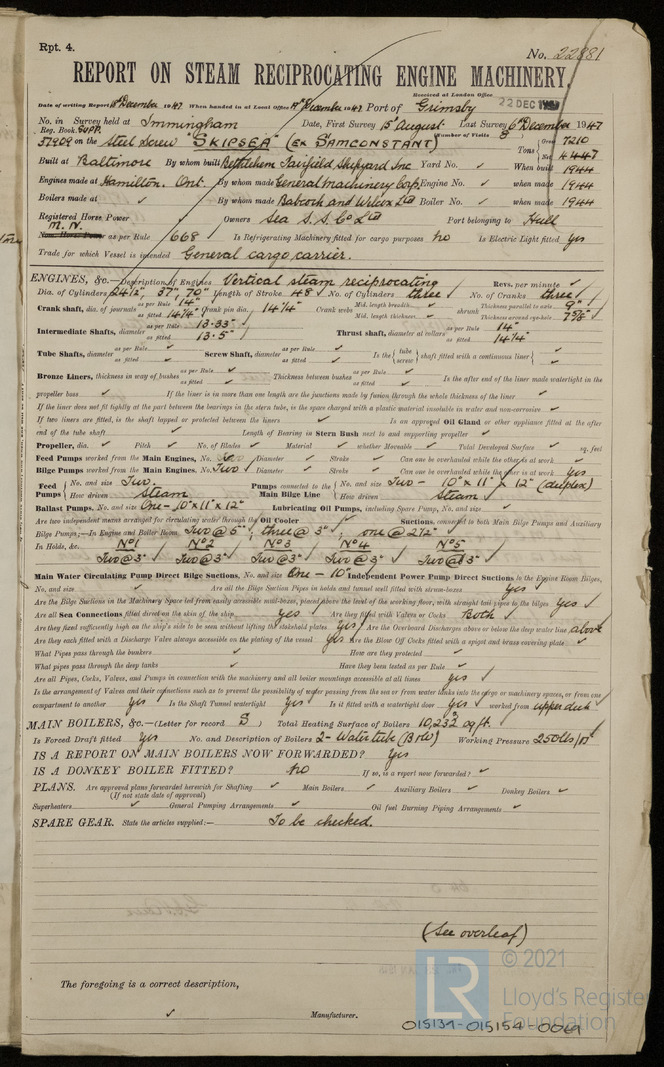 Rpt. 4.
No. 22881
REPORT ON STEAM RECIPROCATING ENGINE MACHINERY.
Received at London Office 22 DEC 1947
Date of writing Report December 1947 When handed in at Local Office December 1947 Port of Grimsby
No. in Survey held at Immingham Date, First Survey 15th August Last Survey 6th December 1947
Reg. Book. Supp. Number of Visits 8
37909 on the Steel Screw "SKIPSEA" (EX SAMCONSTANT) Tons Gross 7210 Net 4447
Built at Baltimore By whom built Bethlehem Fairfield Shipyard Inc Yard No. ✓ When built 1944
Engines made at Hamilton, Ont. By whom made General Machinery Corp. Engine No. ✓ when made 1944
Boilers made at ✓ By whom made Babcock and Wilcox Ltd Boiler No. ✓ when made 1944
Registered Horse Power ✓ Owners Sea S.S. Co Ltd Port belonging to Hull
M.N. Nom. Horse Power as per Rule 668 Is Refrigerating Machinery fitted for cargo purposes No Is Electric Light fitted yes
Trade for which Vessel is intended General cargo carrier.
ENGINES, &c.—Description of Engines Vertical steam reciprocating Revs. per minute ✓
Dia. of Cylinders 24½", 37", 70" Length of Stroke 48" No. of Cylinders three No. of Cranks three
Crank shaft, dia. of journals as per Rule 14" as fitted 14¼" Crank pin dia. 14¼" Crank webs Mid. length breadth ✓ Mid. length thickness ✓ shrunk Thickness parallel to axis 9" Thickness around eye-hole 7⅝"
Intermediate Shafts, diameter as per Rule 13.33" as fitted 13.5" Thrust shaft, diameter at collars as per Rule 14" as fitted 14¼"
Tube Shafts, diameter as per Rule ✓ as fitted ✓ Screw Shaft, diameter as per Rule ✓ as fitted ✓ Is the tube screw shaft fitted with a continuous liner ✓
Bronze Liners, thickness in way of bushes as per Rule ✓ as fitted ✓ Thickness between bushes as per Rule ✓ as fitted ✓ Is the after end of the liner made watertight in the
propeller boss ✓ If the liner is in more than one length are the junctions made by fusion through the whole thickness of the liner ✓
If the liner does not fit tightly at the part between the bearings in the stern tube, is the space charged with a plastic material insoluble in water and non-corrosive ✓
If two liners are fitted, is the shaft lapped or protected between the liners ✓ Is an approved Oil Gland or other appliance fitted at the after
end of the tube shaft ✓ Length of Bearing in Stern Bush next to and supporting propeller ✓
Propeller, dia. ✓ Pitch ✓ No. of Blades ✓ Material ✓ whether Moveable ✓ Total Developed Surface ✓ sq. feet
Feed Pumps worked from the Main Engines, No. Diameter ✓ Stroke ✓ Can one be overhauled while the other is at work ✓
Bilge Pumps worked from the Main Engines, No. Two Diameter ✓ Stroke ✓ Can one be overhauled while the other is at work Yes
Feed Pumps No. and size Two. How driven Steam Pumps connected to the Main Bilge Line No. and size Two - 10" x 11" x 12" (duplex) How driven Steam
Ballast Pumps, No. and size One - 10" x 11" x 12" Lubricating Oil Pumps, including Spare Pump, No. and size ✓
Are two independent means arranged for circulating water through the Oil Cooler ✓ Suctions, connected to both Main Bilge Pumps and Auxiliary
Bilge Pumps;—In Engine and Boiler Room Two @ 5", three @ 3", one @ 2½"
In Holds, &c. No 1 No 2 No 3 No 4 No 5
Two @ 3" Two @ 3" Two @ 3" Two @ 3" Two @ 3"
Main Water Circulating Pump Direct Bilge Suctions, No. and size One - 10" Independent Power Pump Direct Suctions to the Engine Room Bilges,
No. and size ✓ Are all the Bilge Suction Pipes in holds and tunnel well fitted with strum-boxes yes
Are the Bilge Suctions in the Machinery Space led from easily accessible mud-boxes, placed above the level of the working floor, with straight tail pipes to the bilges yes
Are all Sea Connections fitted direct on the skin of the ship yes Are they fitted with Valves or Cocks Both
Are they fixed sufficiently high on the ship's side to be seen without lifting the stokehold plates yes Are the Overboard Discharges above or below the deep water line above
Are they each fitted with a Discharge Valve always accessible on the plating of the vessel yes Are the Blow Off Cocks fitted with a spigot and brass covering plate ✓
What Pipes pass through the bunkers ✓ How are they protected ✓
What pipes pass through the deep tanks ✓ Have they been tested as per Rule ✓
Are all Pipes, Cocks, Valves, and Pumps in connection with the machinery and all boiler mountings accessible at all times yes
Is the arrangement of Valves and their connections such as to prevent the possibility of water passing from the sea or from water tanks into the cargo or machinery spaces, or from one
compartment to another yes Is the Shaft Tunnel watertight yes Is it fitted with a watertight door yes worked from upper deck
MAIN BOILERS, &c.—(Letter for record S ) Total Heating Surface of Boilers 10,232 sq ft.
Is Forced Draft fitted yes No. and Description of Boilers 2 - Watertube (B&W) Working Pressure 250 lbs/□"
IS A REPORT ON MAIN BOILERS NOW FORWARDED? Yes
IS A DONKEY BOILER FITTED? No If so, is a report now forwarded? ✓
PLANS. Are approved plans forwarded herewith for Shafting ✓ Main Boilers ✓ Auxiliary Boilers ✓ Donkey Boilers ✓
(If not state date of approval)
Superheaters ✓ General Pumping Arrangements ✓ Oil fuel Burning Piping Arrangements ✓
SPARE GEAR. State the articles supplied:— To be checked.
(See overleaf)
The foregoing is a correct description,
✓ Manufacturer.
LR © 2021
Lloyd's Register
Foundation
015134-015154-0069